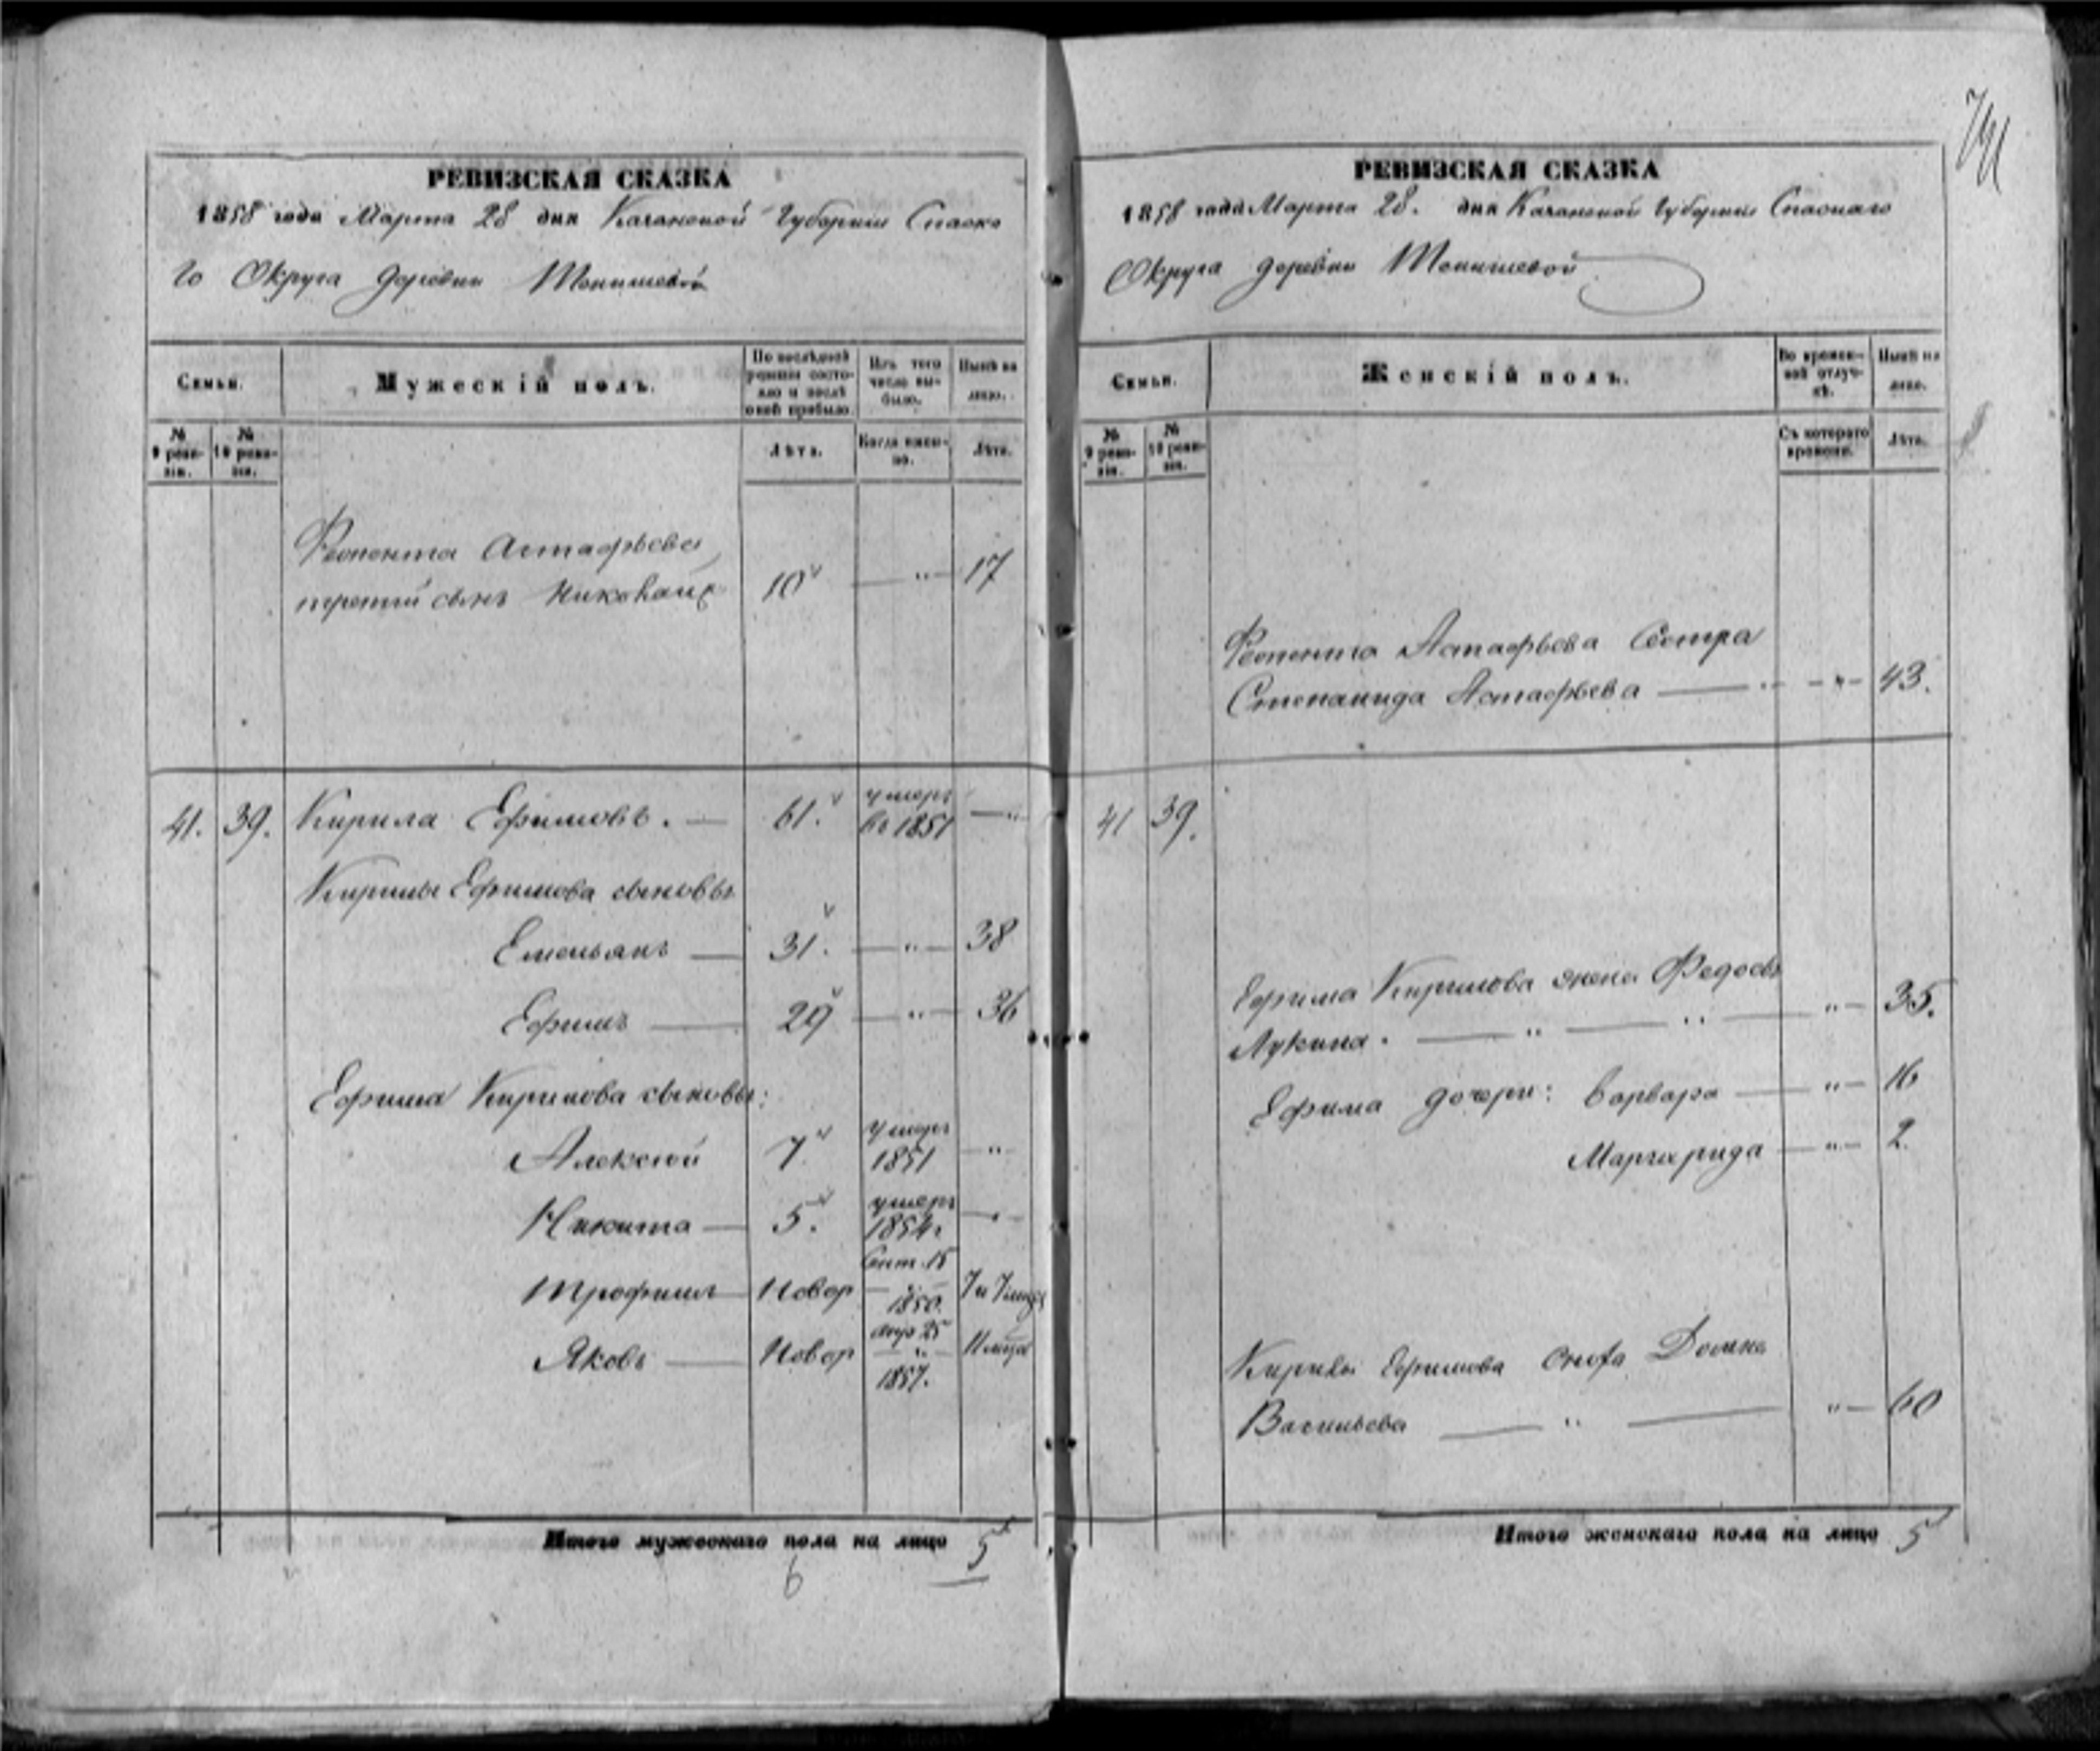 РЕВИЗСКАЯ СКАЗКА
1858 года Марта 28 дня Казанской Губернии Спаско
го Округа деревни
Семьи.
Мужескій полъ.
По послѣдней ревизіи состояло и послѣ оной прибыло.
Изъ того числа выбыло.
Нынѣ на лицо.
№ 9 ревизіи.
№ 10 ревизіи.
Лѣта.
Когда именно.
Лѣта.
Астафьева
третій сынъ Николай 10 — " — 17
41. 39. Кирила Ефимовъ. — 61. умеръ въ 1851 — "
Кирилы Ефимова сыновья
Емельянъ — 31. — " — 38
Ефимъ — 29 — " — 36
Ефима Кирилова сыновья:
Алексѣй 7. умеръ 1851 "
Никита — 5. умеръ 1854 —
Трофимъ — Новор Сент. 15 1850. 7 и 7 мцв
Яковъ — Новор апр 25 " 1857. 11 мцв
Итого мужескаго пола на лицо 5
6
РЕВИЗСКАЯ СКАЗКА
1858 года Марта 28. дня Казанской Губернии Спаскаго
Округа деревни
Семьи.
Женскій полъ.
Во временной отлучкѣ.
Нынѣ на лицо.
№ 9 ревизіи.
№ 10 ревизіи.
Съ котораго времени.
Лѣта.
Астафьева Сестра
Степанида Астафьева — " — " — 43.
41 39.
Ефима Кирилова жена Федосья
Лукина. — " — " — " — 35.
Ефима дочери: Варвара — " — 16
Маргарида — " — 2.
Кирилы Ефимова Домна
Васильева — " — " — 60
Итого женскаго пола на лицо 5